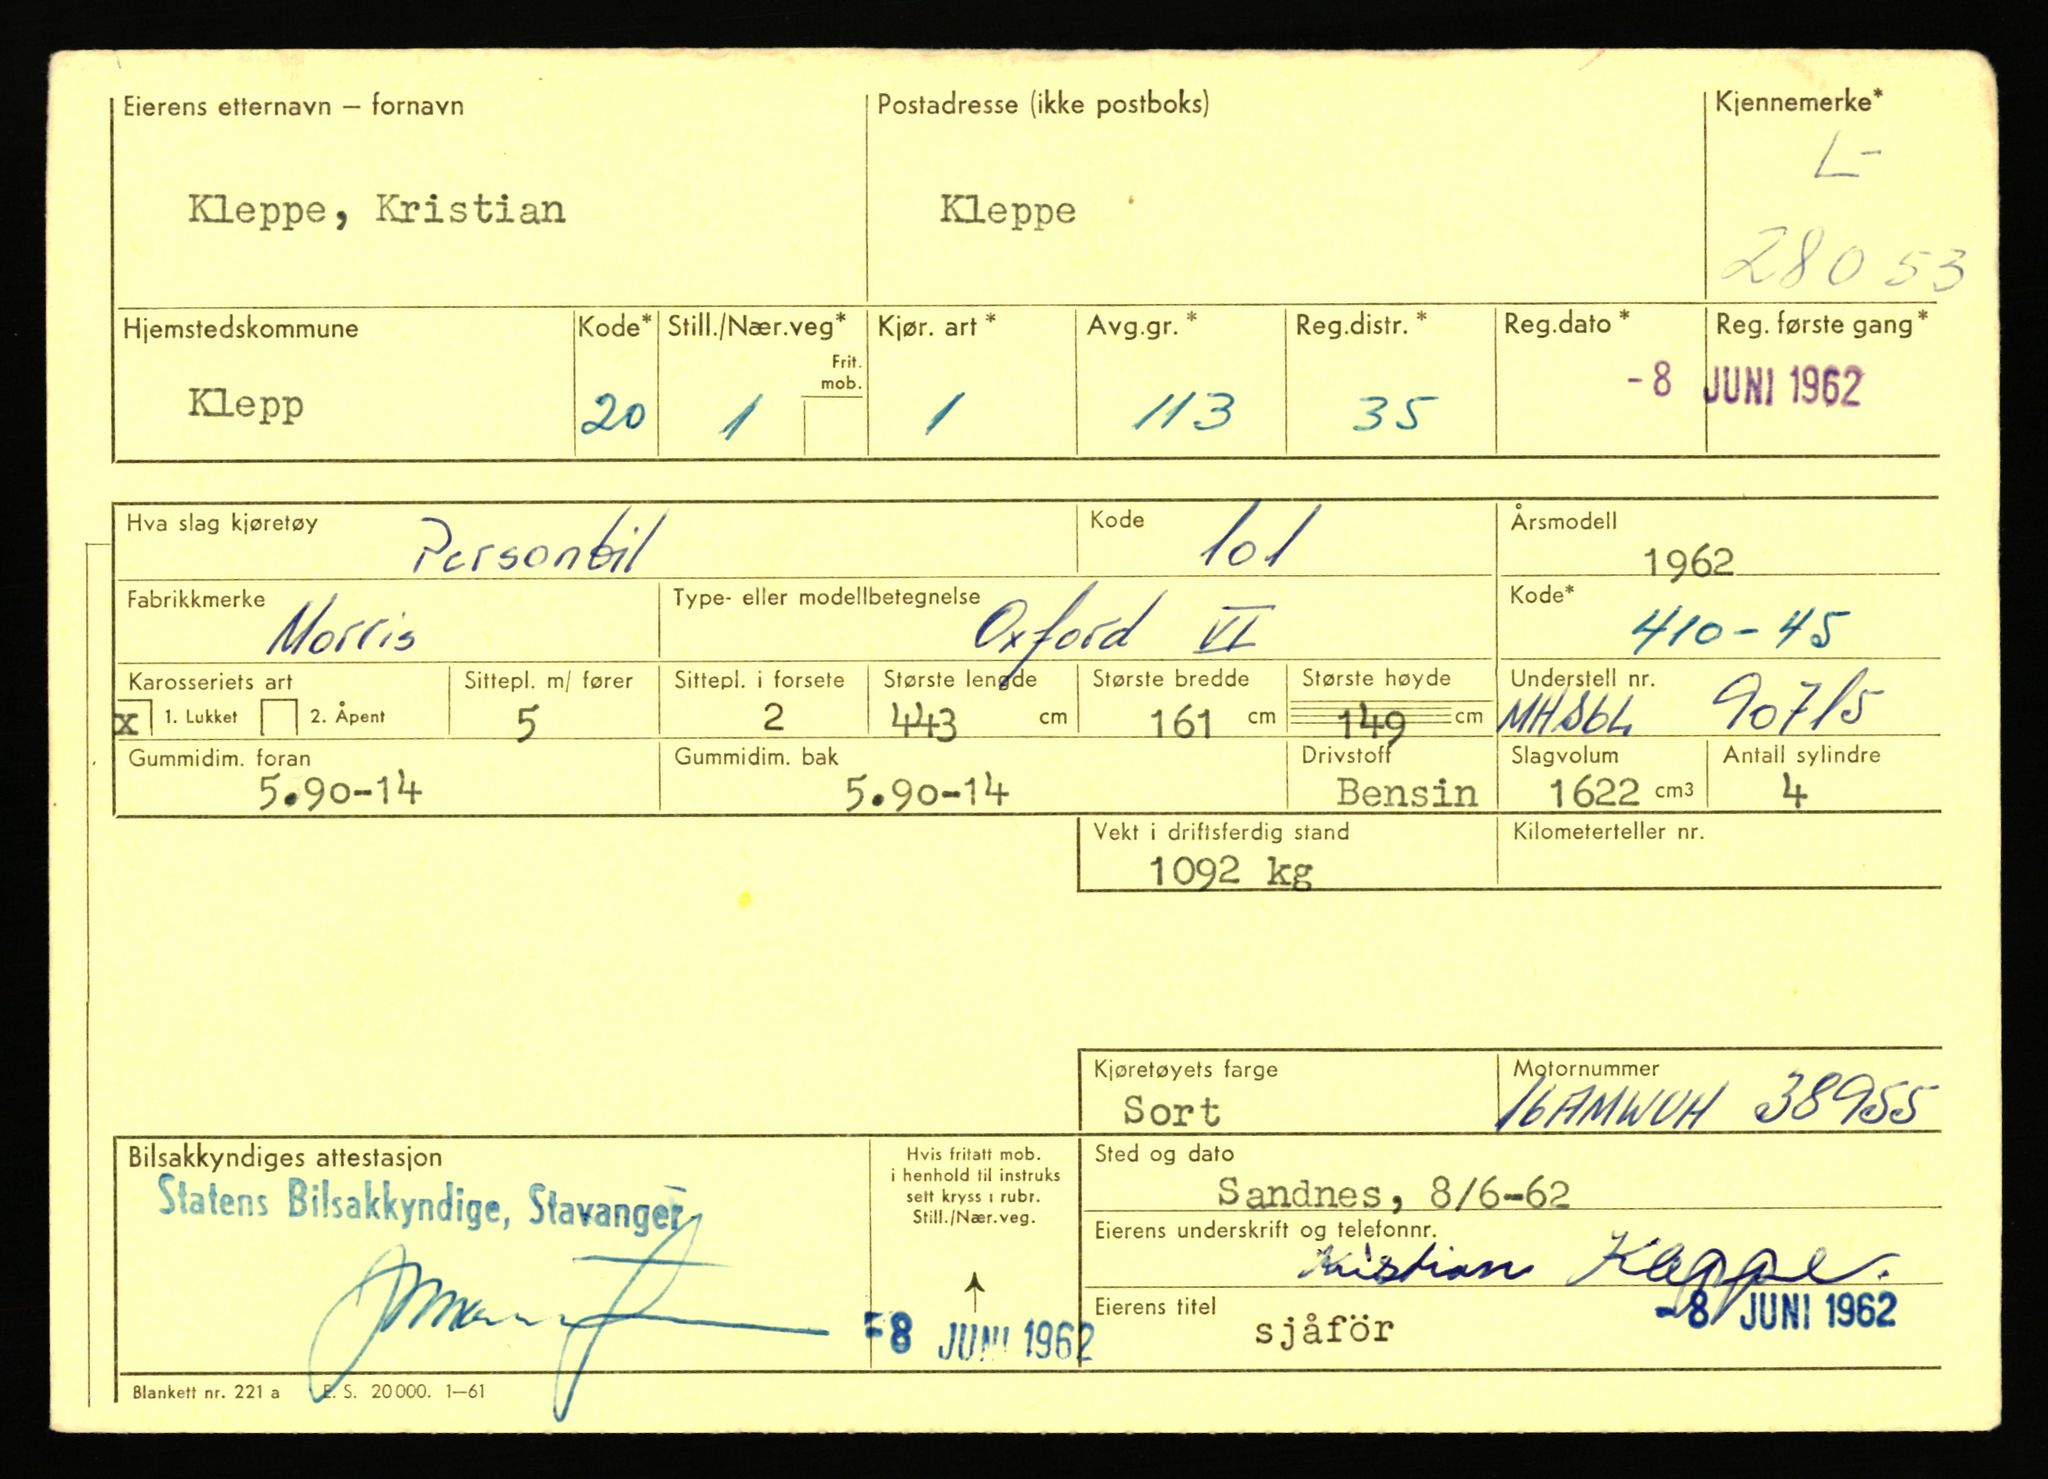 Eierens etternavn – fornavn
Postadresse (ikke postboks)
Kjennemerke*
L-
28053
Kleppe, Kristian
Kleppe
Hjemstedskommune
Kode*
Still./Nær.veg*
Frit. mob.
Kjør. art *
Avg.gr. *
Reg.distr. *
Reg.dato *
Reg. første gang*
Klepp
20
1
1
113
35
-8 JUNI 1962
Hva slag kjøretøy
Personbil
Kode
101
Årsmodell
1962
Fabrikkmerke
Morris
Type- eller modellbetegnelse
Oxford VI
Kode*
410-45
Karosseriets art
x 1. Lukket 2. Åpent
Sittepl. m/ fører
5
Sittepl. i forsete
2
Største lengde
443 cm
Største bredde
161 cm
Største høyde
149 cm
Understell nr.
90715
Gummidim. foran
5.90-14
Gummidim. bak
5.90-14
Drivstoff
Bensin
Slagvolum
1622 cm3
Antall sylindre
4
Vekt i driftsferdig stand
1092 kg
Kilometerteller nr.
Kjøretøyets farge
Sort
Motornummer
16AMWUH 38955
Bilsakkyndiges attestasjon
Statens Bilsakkyndige, Stavanger
Hvis fritatt mob.
i henhold til instruks
sett kryss i rubr.
Still./Nær.veg.
-8 JUNI 1962
Sted og dato
Sandnes, 8/6-62
Eierens underskrift og telefonnr.
Kristian Kleppe.
Eierens titel
sjåför
-8 JUNI 1962
Blankett nr. 221 a E. S. 20 000. 1–61